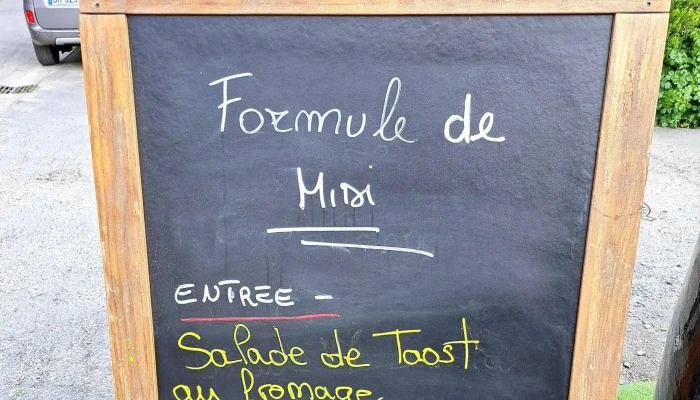 Formule de
Midi
ENTREE -
Salade de Taost
au fromage